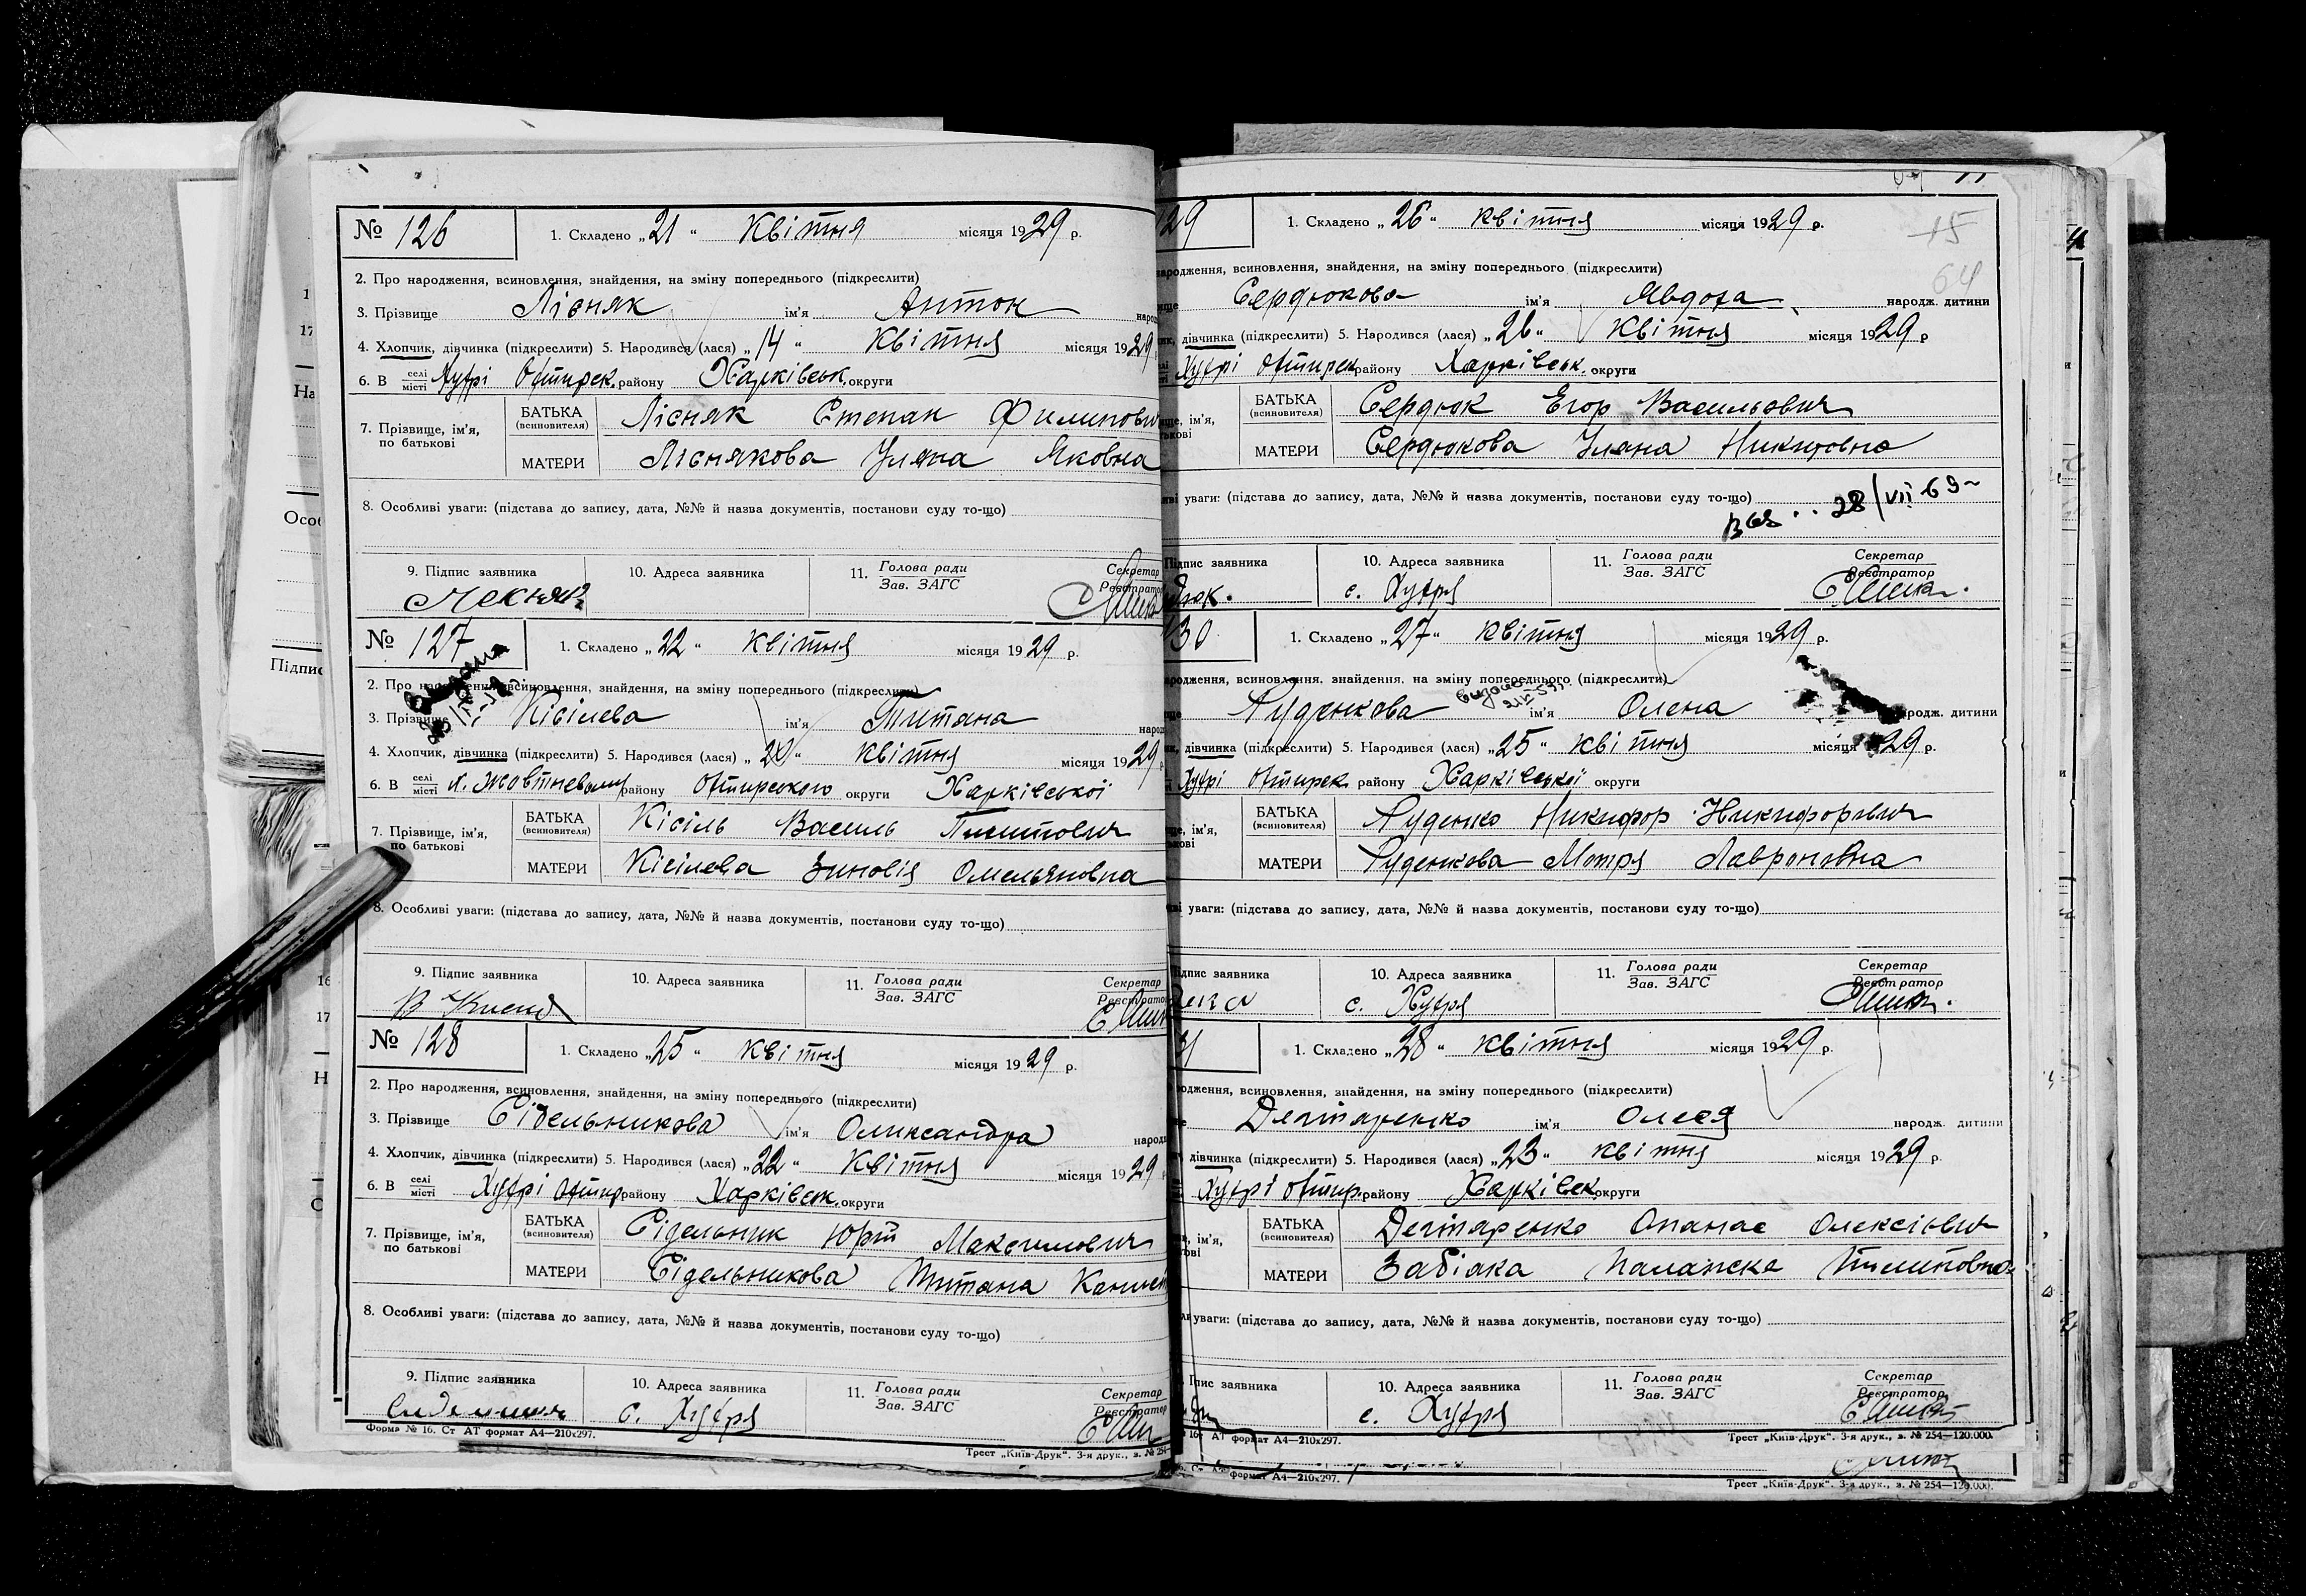 № 126
1. Складено „21“ Квітня місяця 1929 р.
2. Про народження, всиновлення, знайдення, на зміну попереднього (підкреслити)
3. Прізвище Лісняк ім'я Антон народ
4. Хлопчик, дівчинка (підкреслити) 5. Народився (лася) „14“ Квітня місяця 1929
6. В селі місті Хухрі Охтирск. району Харківськ. округи
7. Прізвище, ім'я, по батькові
БАТЬКА (всиновителя) Лісняк Степан Филипович
МАТЕРИЛіснякова Уляна Яковна
8. Особливі уваги: (підстава до запису, дата, №№ й назва документів, постанови суду то-що)
9. Підпис заявника 10. Адреса заявника 11. Голова ради Зав. ЗАГС Секретар Реєстратор
№ 127
1. Складено „22“ квітня місяця 1929 р.
2. Про народження, всиновлення, знайдення, на зміну попереднього (підкреслити)
3. Прізвище Кісілева ім'я Титана народ
4. Хлопчик, дівчинка (підкреслити) 5. Народився (лася) „20“ квітня місяця 1929
6. В селі місті району Охтирського округи Харківської
7. Прізвище, ім'я, по батькові
БАТЬКА (всиновителя) Кісіль Василь
МАТЕРИ Кісілева Зиновія Омельяновна
8. Особливі уваги: (підстава до запису, дата, №№ й назва документів, постанови суду то-що)
9. Підпис заявника 10. Адреса заявника 11. Голова ради Зав. ЗАГС Секретар Реєстратор
№ 128
1. Складено „25“ квітня місяця 1929 р.
2. Про народження, всиновлення, знайдення, на зміну попереднього (підкреслити)
3. Прізвище Сідельникова ім'я Оликсандра народ
4. Хлопчик, дівчинка (підкреслити) 5. Народився (лася) „22“ Квітня місяця 1929
6. В селі місті Хухрі Охтир. району Харківськ. округи
7. Прізвище, ім'я, по батькові
БАТЬКА (всиновителя) Сідельник Юрій Максимович
МАТЕРИ Сідельникова Титана
8. Особливі уваги: (підстава до запису, дата, №№ й назва документів, постанови суду то-що)
9. Підпис заявника 10. Адреса заявника 11. Голова ради Зав. ЗАГС Секретар Реєстратор
с. Хухря
Форма № 16. Ст АТ формат А4—210х297.
Трест „Київ-Друк“. 3-я друк., з. № 254
29
1. Складено „26“ квітня місяця 1929 р.
15
64
народження, всиновлення, знайдення, на зміну попереднього (підкреслити)
Сердюкова ім'я Явдоха народж. дитини
дівчинка (підкреслити) 5. Народився (лася) „26“ Квітня місяця 1929 р
Хухрі Охтирск району Харківськ. округи
БАТЬКА (всиновителя) Сердюк Егор Васильович
МАТЕРИ Сердюкова Уляна Никитовна
уваги: (підстава до запису, дата, №№ й назва документів, постанови суду то-що)
28/VII 69
Підпис заявника 10. Адреса заявника 11. Голова ради Зав. ЗАГС Секретар Реєстратор
с. Хухря
30
1. Складено „27“ квітня місяця 1929 р.
народження, всиновлення, знайдення, на зміну попереднього (підкреслити)
Руденкова ім'я Олена народж. дитини
дівчинка (підкреслити) 5. Народився (лася) „25“ квітня місяця 1929 р.
Хухрі Охтирск району Харківської округи
БАТЬКА (всиновителя) Руденко Никифор Никифорович
МАТЕРИ Руденкова Мотря Лавроновна
уваги: (підстава до запису, дата, №№ й назва документів, постанови суду то-що)
Підпис заявника 10. Адреса заявника 11. Голова ради Зав. ЗАГС Секретар Реєстратор
с. Хухря
31
1. Складено „28“ квітня місяця 1929 р.
народження, всиновлення, знайдення, на зміну попереднього (підкреслити)
Дегтаренко ім'я Олеся народж. дитини
дівчинка (підкреслити) 5. Народився (лася) „23“ квітня місяця 1929 р.
Хухрі Охтир. району Харківськ округи
БАТЬКА (всиновителя) Дегтаренко Опанас Олексіович
МАТЕРИ Забіака Паланжка
уваги: (підстава до запису, дата, №№ й назва документів, постанови суду то-що)
заявника 10. Адреса заявника 11. Голова ради Зав. ЗАГС Секретар Реєстратор
с. Хухря
АТ формат А4—210х297.
Трест „Київ-Друк“. 3-я друк., з. № 254—120.000.
формат А4—210х297.
Трест „Київ-Друк“. 3-я друк., з. № 254—120.000.